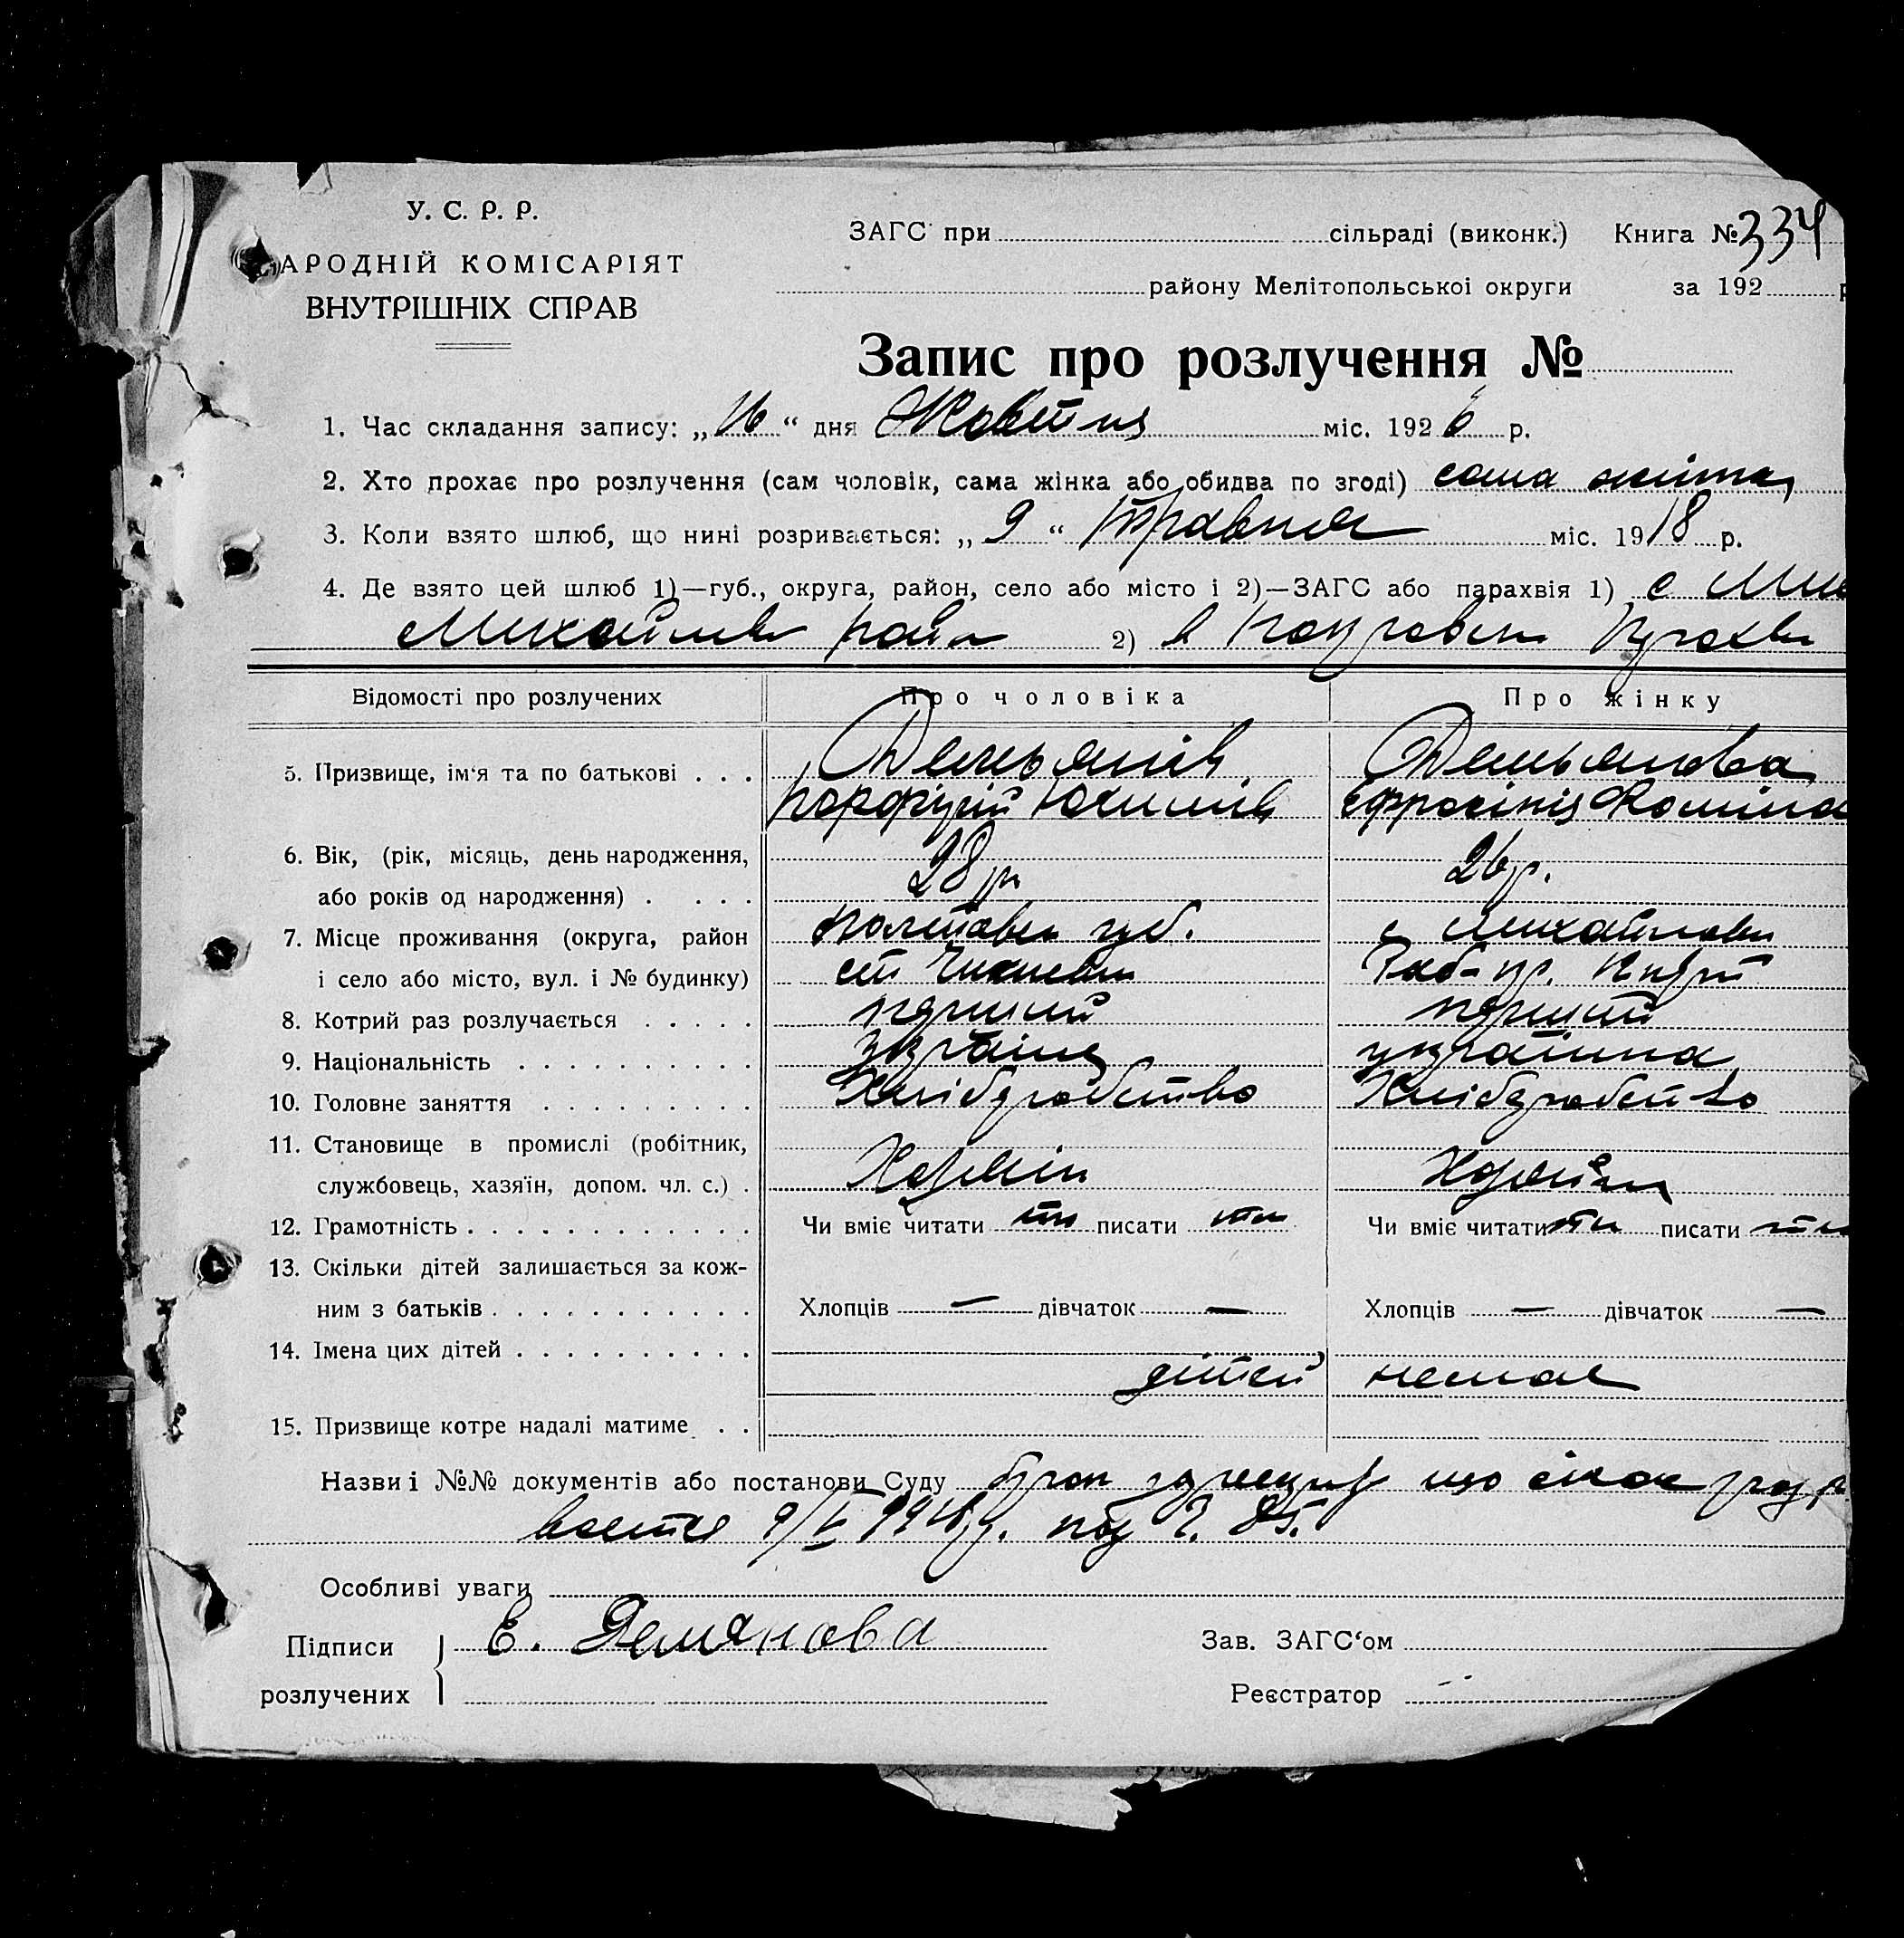 У. С. Р. Р.
АРОДНІЙ КОМІСАРІЯТ
ВНУТРІШНІХ СПРАВ
ЗАГС при сільраді (виконк.) Книга № 334
району Мелітопольської округи за 192
Запис про розлучення №
1. Час складання запису: „16“ дня Жовтня міс. 1926 р.
2. Хто прохає про розлучення (сам чоловік, сама жінка або обидва по згоді) сама жінка
3. Коли взято шлюб, що нині розривається: „9“ травня міс. 1918 р.
4. Де взято цей шлюб 1)—губ., округа, район, село або місто і 2)—ЗАГС або парахвія 1) с
2) в
Відомості про розлучених Про чоловіка Про жінку
5. Призвище, ім‘я та по батькові . . . Демьянів Демьянова
Порфирій Юхимів Єфросінія
6. Вік, (рік, місяць, день народження,
або років од народження) . . . . 28 р 26 р.
7. Місце проживання (округа, район Полтавск губ. с
і село або місто, вул. і № будинку) ст
8. Котрий раз розлучається . . . . . перший перший
9. Національність . . . . . . . . . . українц українка
10. Головне заняття . . . . . . . . . Хлібробство Хлібробство
11. Становище в промислі (робітник,
службовець, хазяїн, допом. чл. с.) .
12. Грамотність . . . . . . . . . . . . . Чи вміє читати писати Чи вміє читати писати
13. Скільки дітей залишається за кож-
ним з батьків . . . . . . . . . . . Хлопців — дівчаток — Хлопців — дівчаток —
14. Імена цих дітей . . . . . . . . . .
дітей немає
15. Призвище котре надалі матиме . .
Назви і №№ документів або постанови Суду що
Особливі уваги
Підписи Е. Демянова Зав. ЗАГС‘ом
розлучених Реєстратор